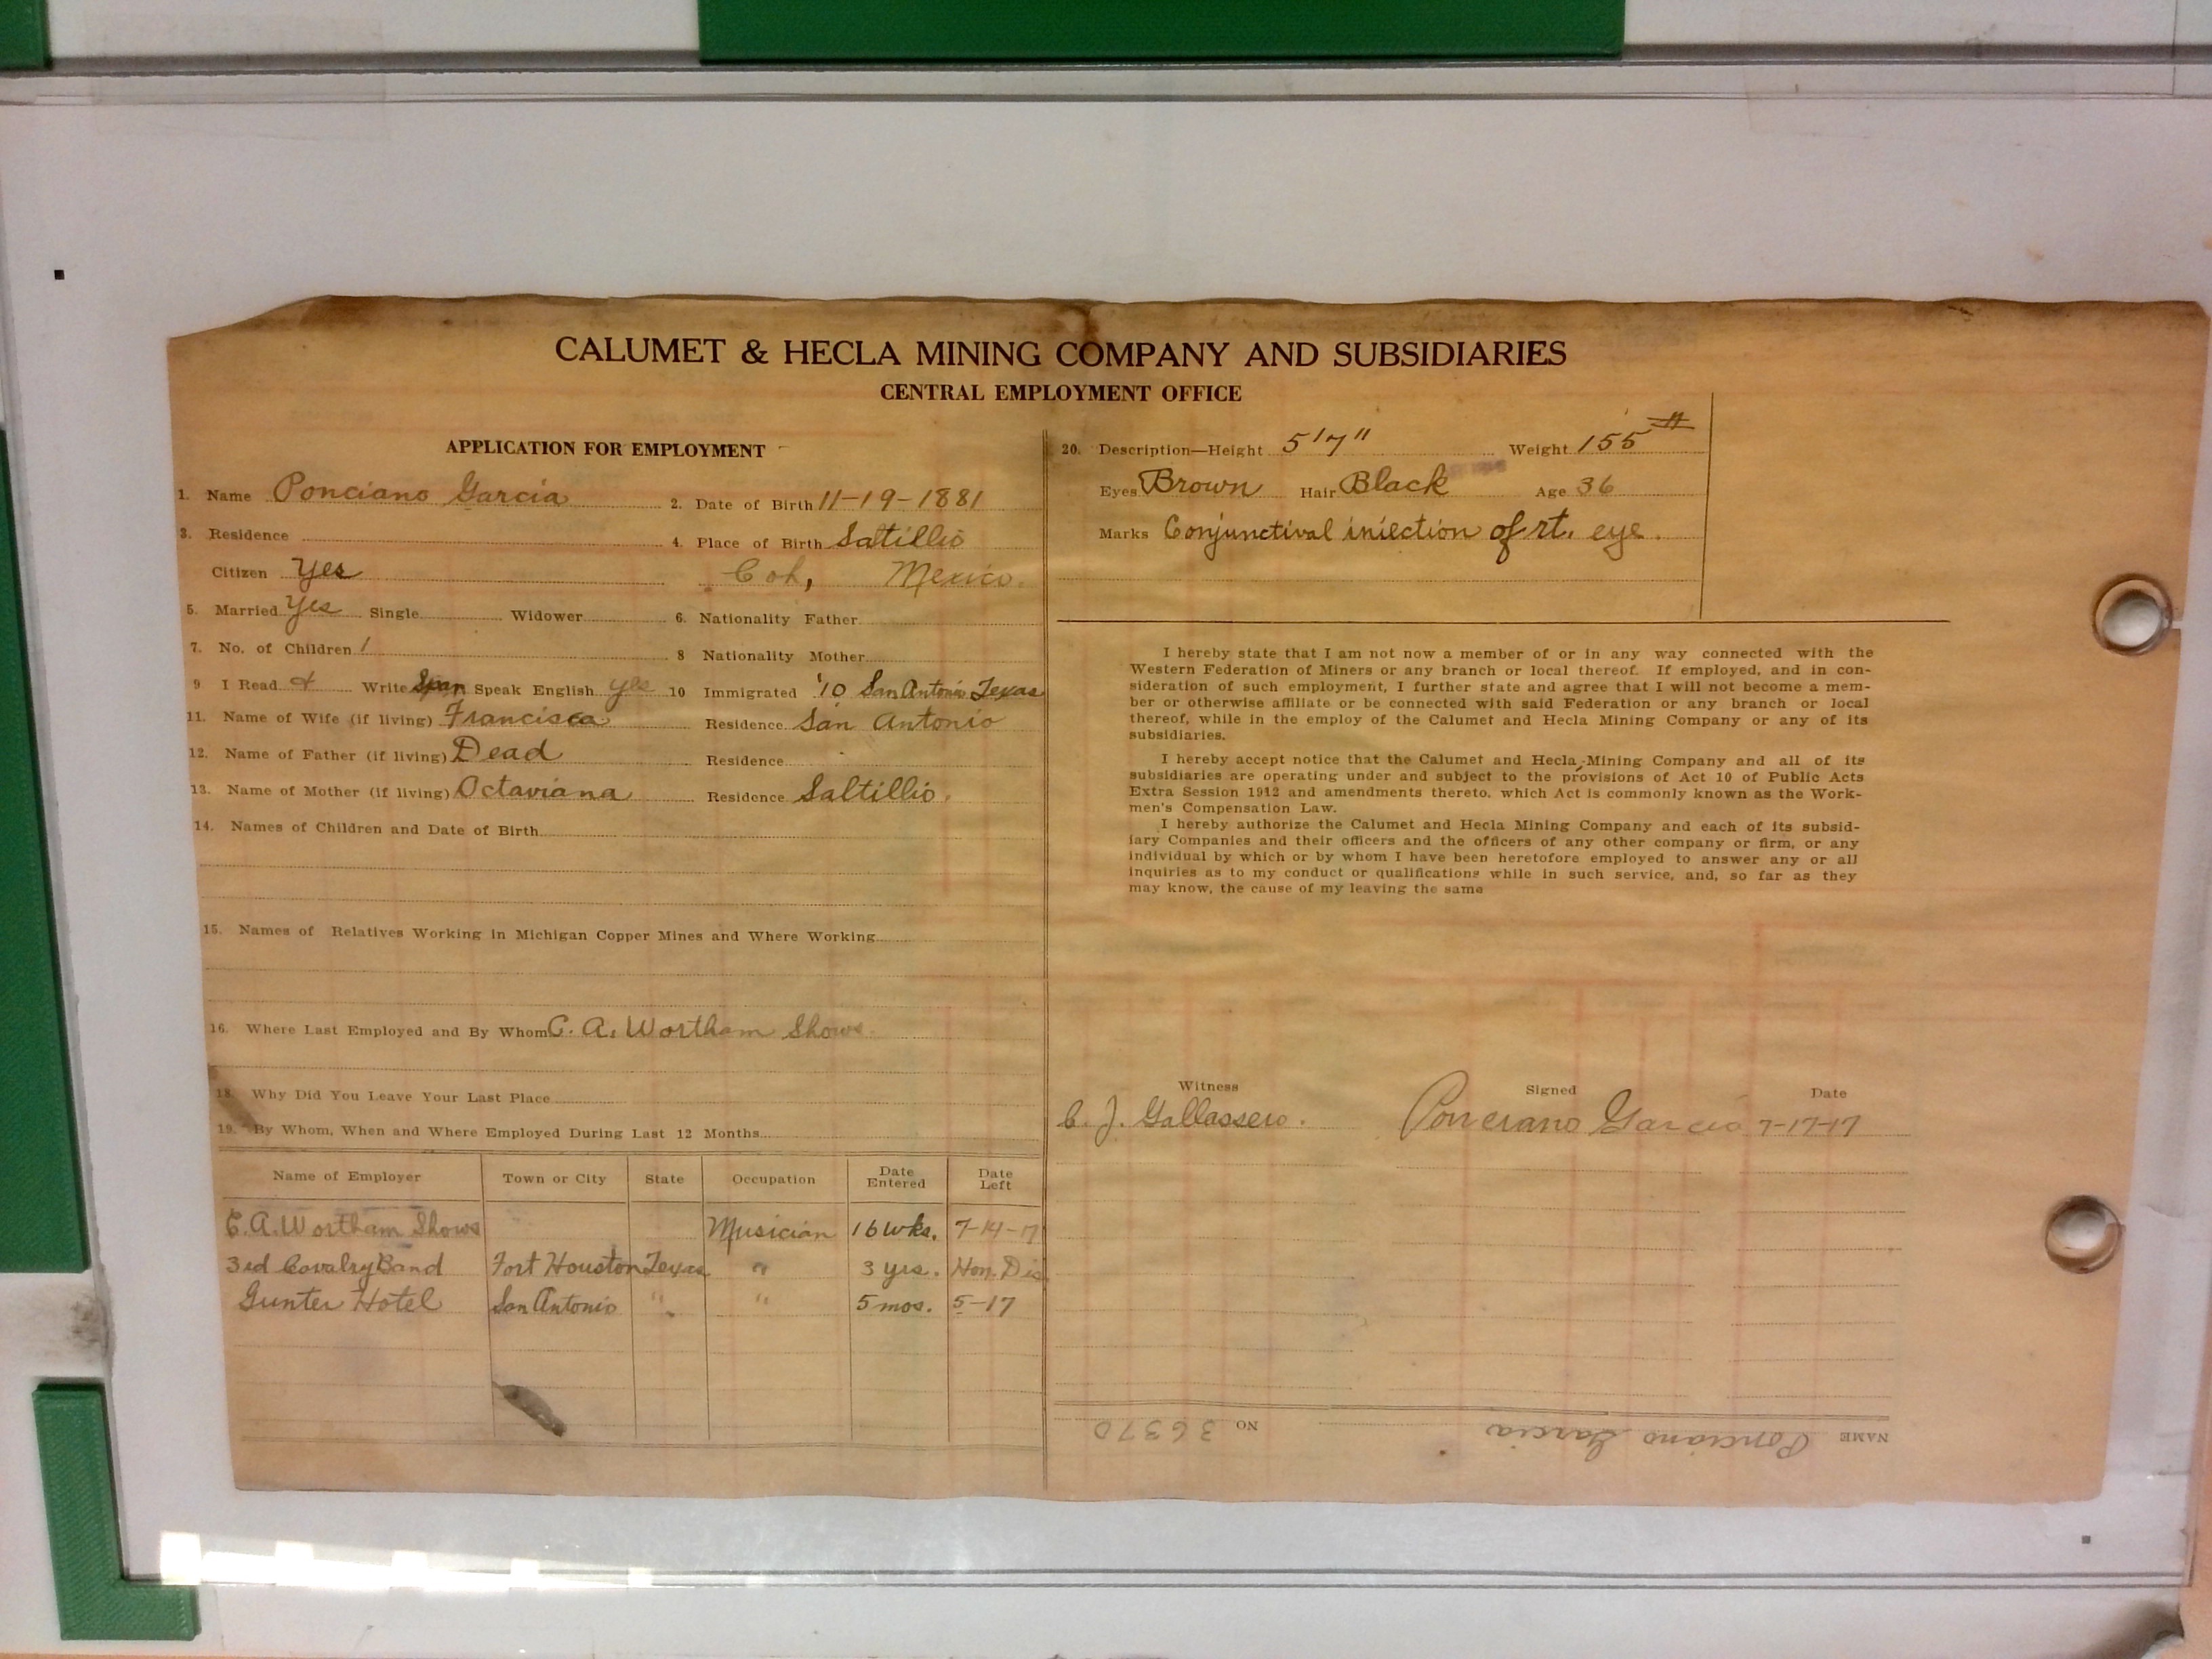 CALUMET & HECLA MINING COMPANY AND SUBSIDIARIES
CENTRAL EMPLOYMENT OFFICE
APPLICATION FOR EMPLOYMENT
1. Name Ponciano Garcia 2. Date of Birth 11-19-1881
3. Residence 4. Place of Birth Saltillio
Citizen Yes Coh, Mexico.
5. Married Yes Single Widower 6. Nationality Father
7. No. of Children 1 8 Nationality Mother
9 I Read & Write Span Speak English yes 10 Immigrated '10 San Antonio Texas
11. Name of Wife (if living) Francisca Residence San Antonio
12. Name of Father (if living) Dead Residence
13. Name of Mother (if living) Octaviana Residence Saltillio.
14. Names of Children and Date of Birth
15. Names of Relatives Working in Michigan Copper Mines and Where Working
16. Where Last Employed and By Whom C. A. Wortham Shows
18. Why Did You Leave Your Last Place
19. By Whom, When and Where Employed During Last 12 Months
Name of Employer Town or City State Occupation Date Entered Date Left
C. A. Wortham Shows Musician 16 wks. 7-14-17
3rd Cavalry Band Fort Houston Texas " 3 yrs. Hon. Dis
Gunter Hotel San Antonio " " 5 mos. 5-17
20. Description—Height 5'7" Weight 155 #
Eyes Brown Hair Black Age 36
Marks Conjunctival iniection of rt. eye.
I hereby state that I am not now a member of or in any way connected with the
Western Federation of Miners or any branch or local thereof. If employed, and in con-
sideration of such employment, I further state and agree that I will not become a mem-
ber or otherwise affiliate or be connected with said Federation or any branch or local
thereof, while in the employ of the Calumet and Hecla Mining Company or any of its
subsidiaries.
I hereby accept notice that the Calumet and Hecla Mining Company and all of its
subsidiaries are operating under and subject to the provisions of Act 10 of Public Acts
Extra Session 1912 and amendments thereto. which Act is commonly known as the Work-
men's Compensation Law.
I hereby authorize the Calumet and Hecla Mining Company and each of its subsid-
iary Companies and their officers and the officers of any other company or firm, or any
individual by which or by whom I have been heretofore employed to answer any or all
inquiries as to my conduct or qualifications while in such service, and, so far as they
may know, the cause of my leaving the same
Witness Signed Date
C. J. Gallassero. Ponciano Garcia 7-17-17
NAME Ponciano Garcia NO 36370